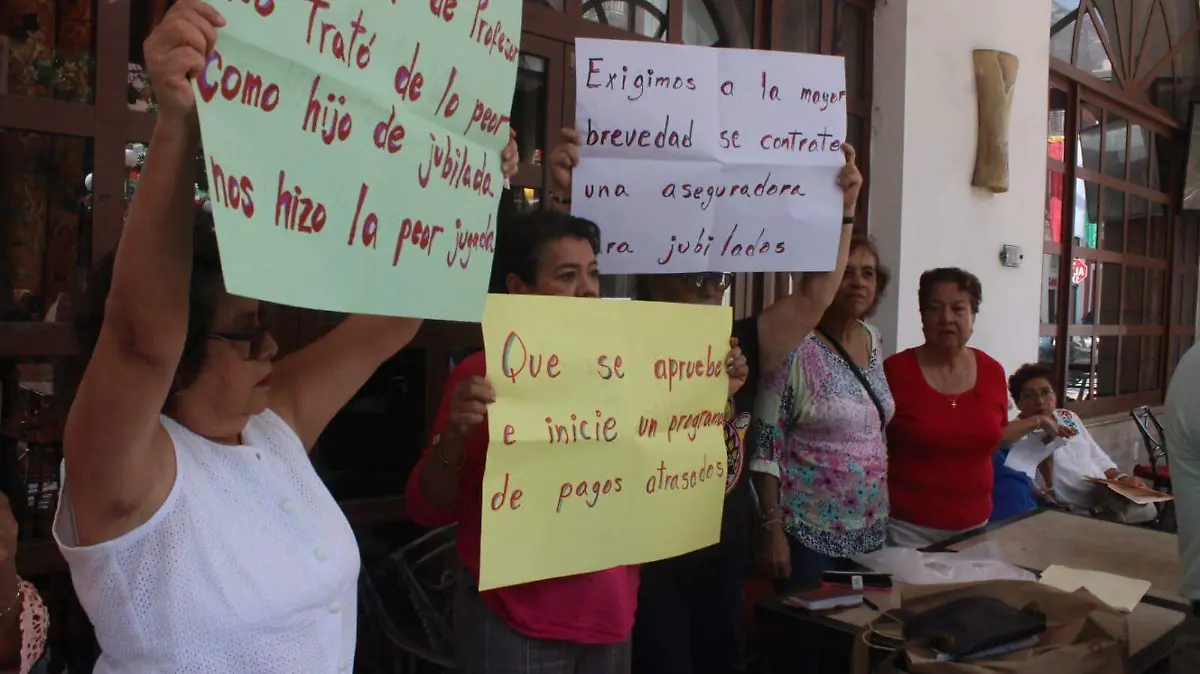 de Profesor
Trató de lo peor
como hijo de jubilada
nos hizo la peor jugada
Exigimos a la mayor
brevedad se contrate
una aseguradora
jubilados
Que se apruebe
e inicie un programa
de pagos atrasados